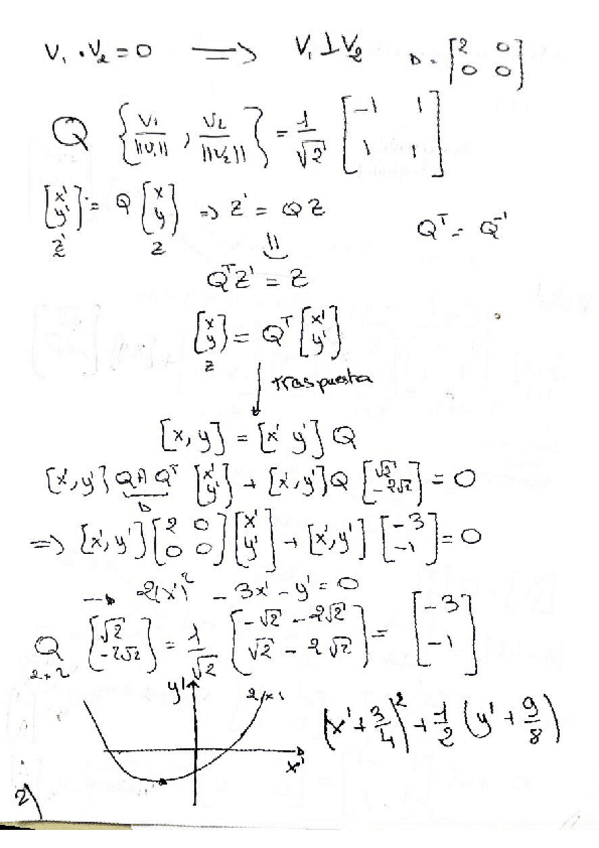 V₁ · V₂ = 0 ⟹ V₁ ⊥ V₂ D = [2 0; 0 0]
Q {V₁/||V₁||, V₂/||V₂||} = 1/√2 [-1 1; 1 1]
[x'; y'] = Q [x; y] ⇒ z' = Q z Qᵀ = Q⁻¹
z' z ⇓
Qᵀz' = z
[x; y] = Qᵀ [x'; y']
z
↓ traspuesta
[x, y] = [x' y'] Q
[x', y'] Q A Qᵀ [x'; y'] + [x', y'] Q [√2; -2√2] = 0
D
⇒ [x', y'] [2 0; 0 0] [x'; y'] + [x', y'] [-3; -1] = 0
→ 2(x')² - 3x' - y' = 0
Q [√2; -2√2] = 1/√2 [-√2 - 2√2; √2 - 2√2] = [-3; -1]
2×2
y'
(x' + 3/4)² + 1/2 (y' + 9/8)
x'
2)